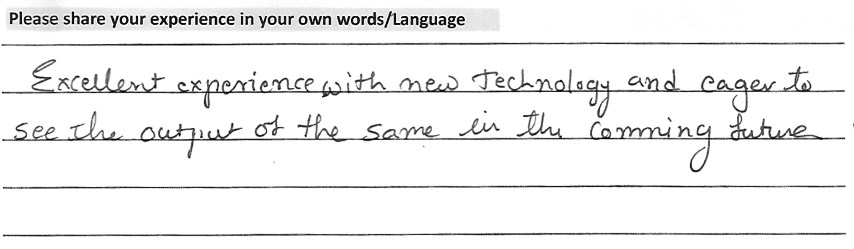 Please share your experience in your own words/Language
Excellent experience with new Technology and eager to
see the output of the same in the Comming future